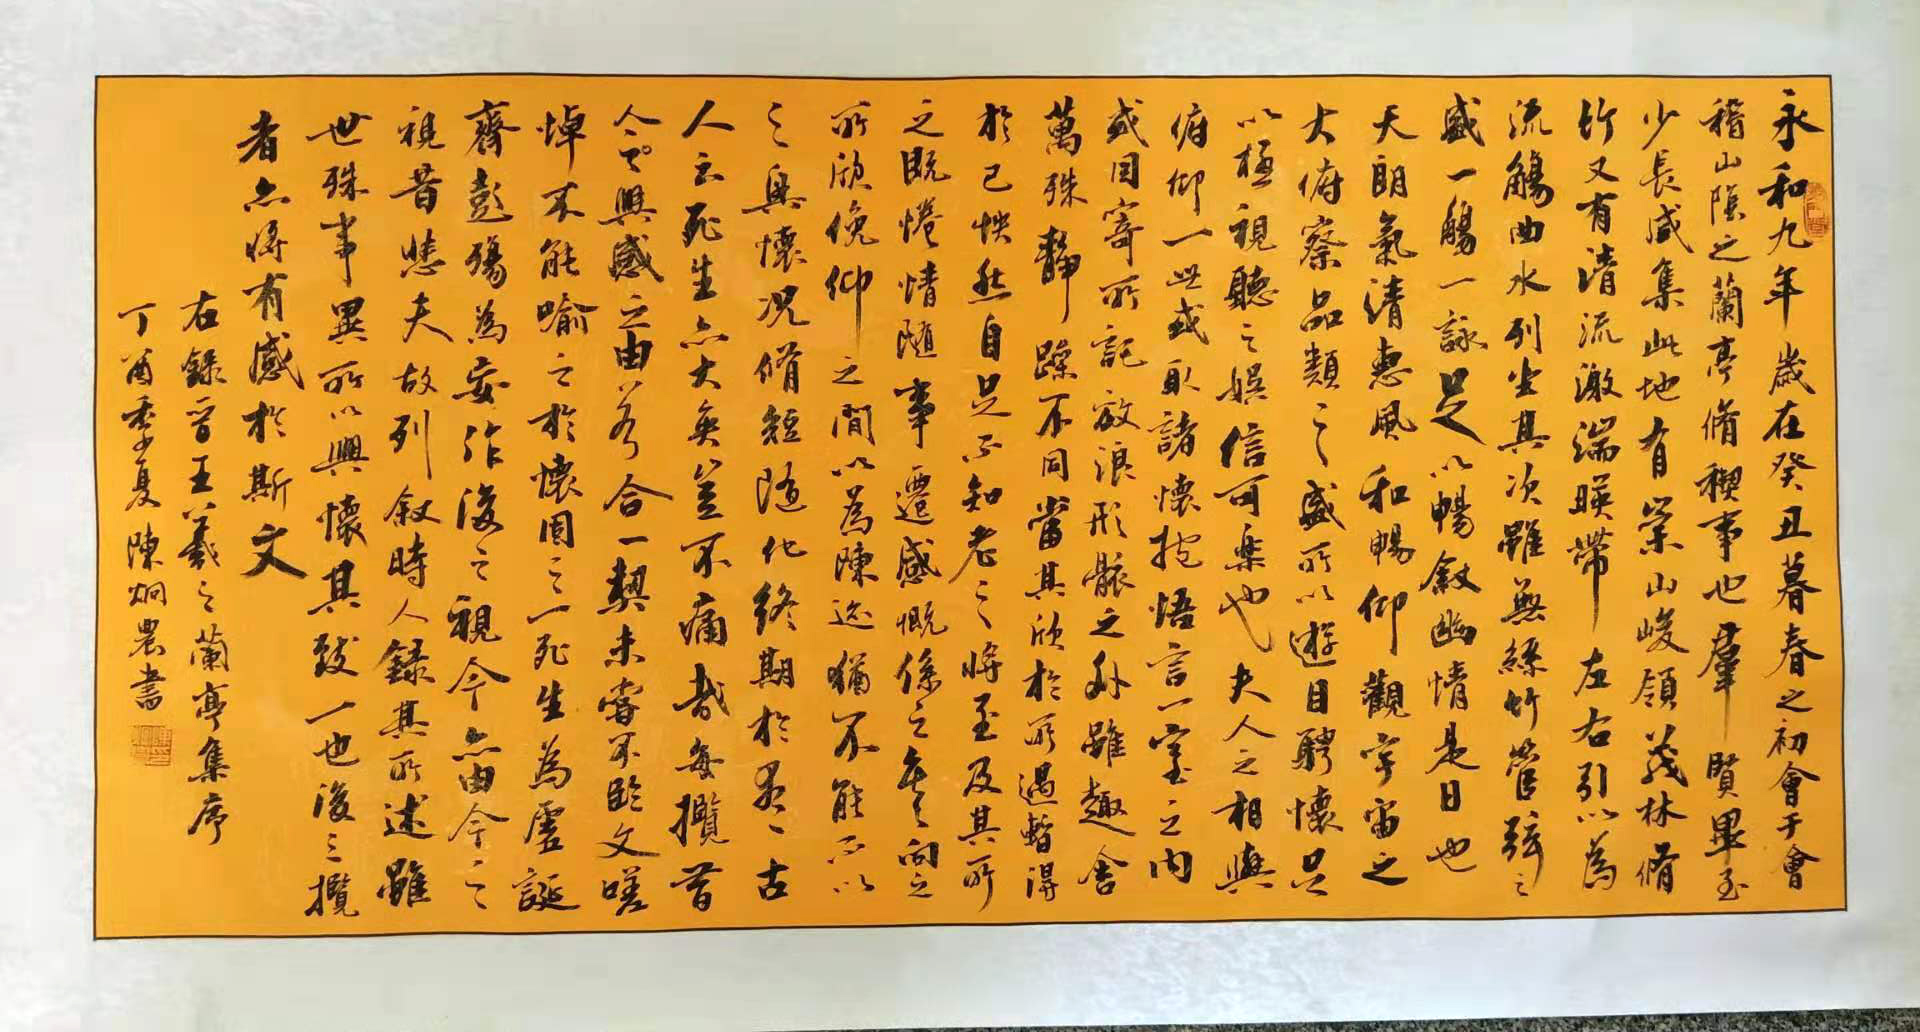 永和九年歲在癸丑暮春之初會于會
稽山陰之蘭亭脩稧事也羣賢畢至
少長咸集此地有崇山峻領茂林脩
竹又有清流激湍暎帶左右引以為
流觴曲水列坐其次雖無絲竹管弦之
盛一觴一詠足以暢敘幽情是日也
天朗氣清惠風和暢仰觀宇宙之
大俯察品類之盛所以遊目騁懷足
以極視聽之娛信可樂也夫人之相與
俯仰一世或取諸懷抱悟言一室之內
或因寄所託放浪形骸之外雖趣舍
萬殊靜躁不同當其欣於所遇暫得
於己怏然自足不知老之將至及其所
之既惓情隨事遷感慨係之矣向之
所欣俛仰之間以為陳迹猶不能不以
之興懷況脩短隨化終期於盡古
人云死生亦大矣豈不痛哉每攬昔
人興感之由若合一契未嘗不臨文嗟
悼不能喻之於懷固之一死生為虛誕
齊彭殤為妄作後之視今亦由今之
視昔悲夫故列敘時人錄其所述雖
世殊事異所以興懷其致一也後之攬
者亦將有感於斯文
右錄晉王羲之蘭亭集序
丁酉季夏陳炯農書